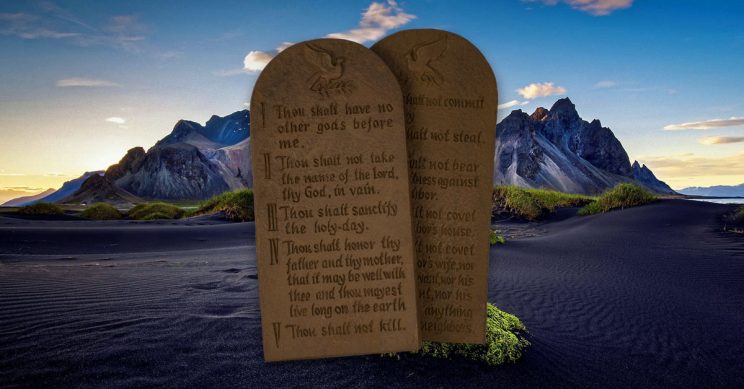 I Thou shalt have no
other gods before
me.
II Thou shalt not take
the name of the lord,
thy God, in vain.
III Thou shalt sanctify
the holy-day.
IV Thou shalt honor thy
father and thy mother,
that it may be well with
thee and thou mayest
live long on the earth
V Thou shalt not kill.
not commit
not steal.
not bear
against
not covet
house.
not covet
wife, nor
nor his
nor his
anything
neighbors.